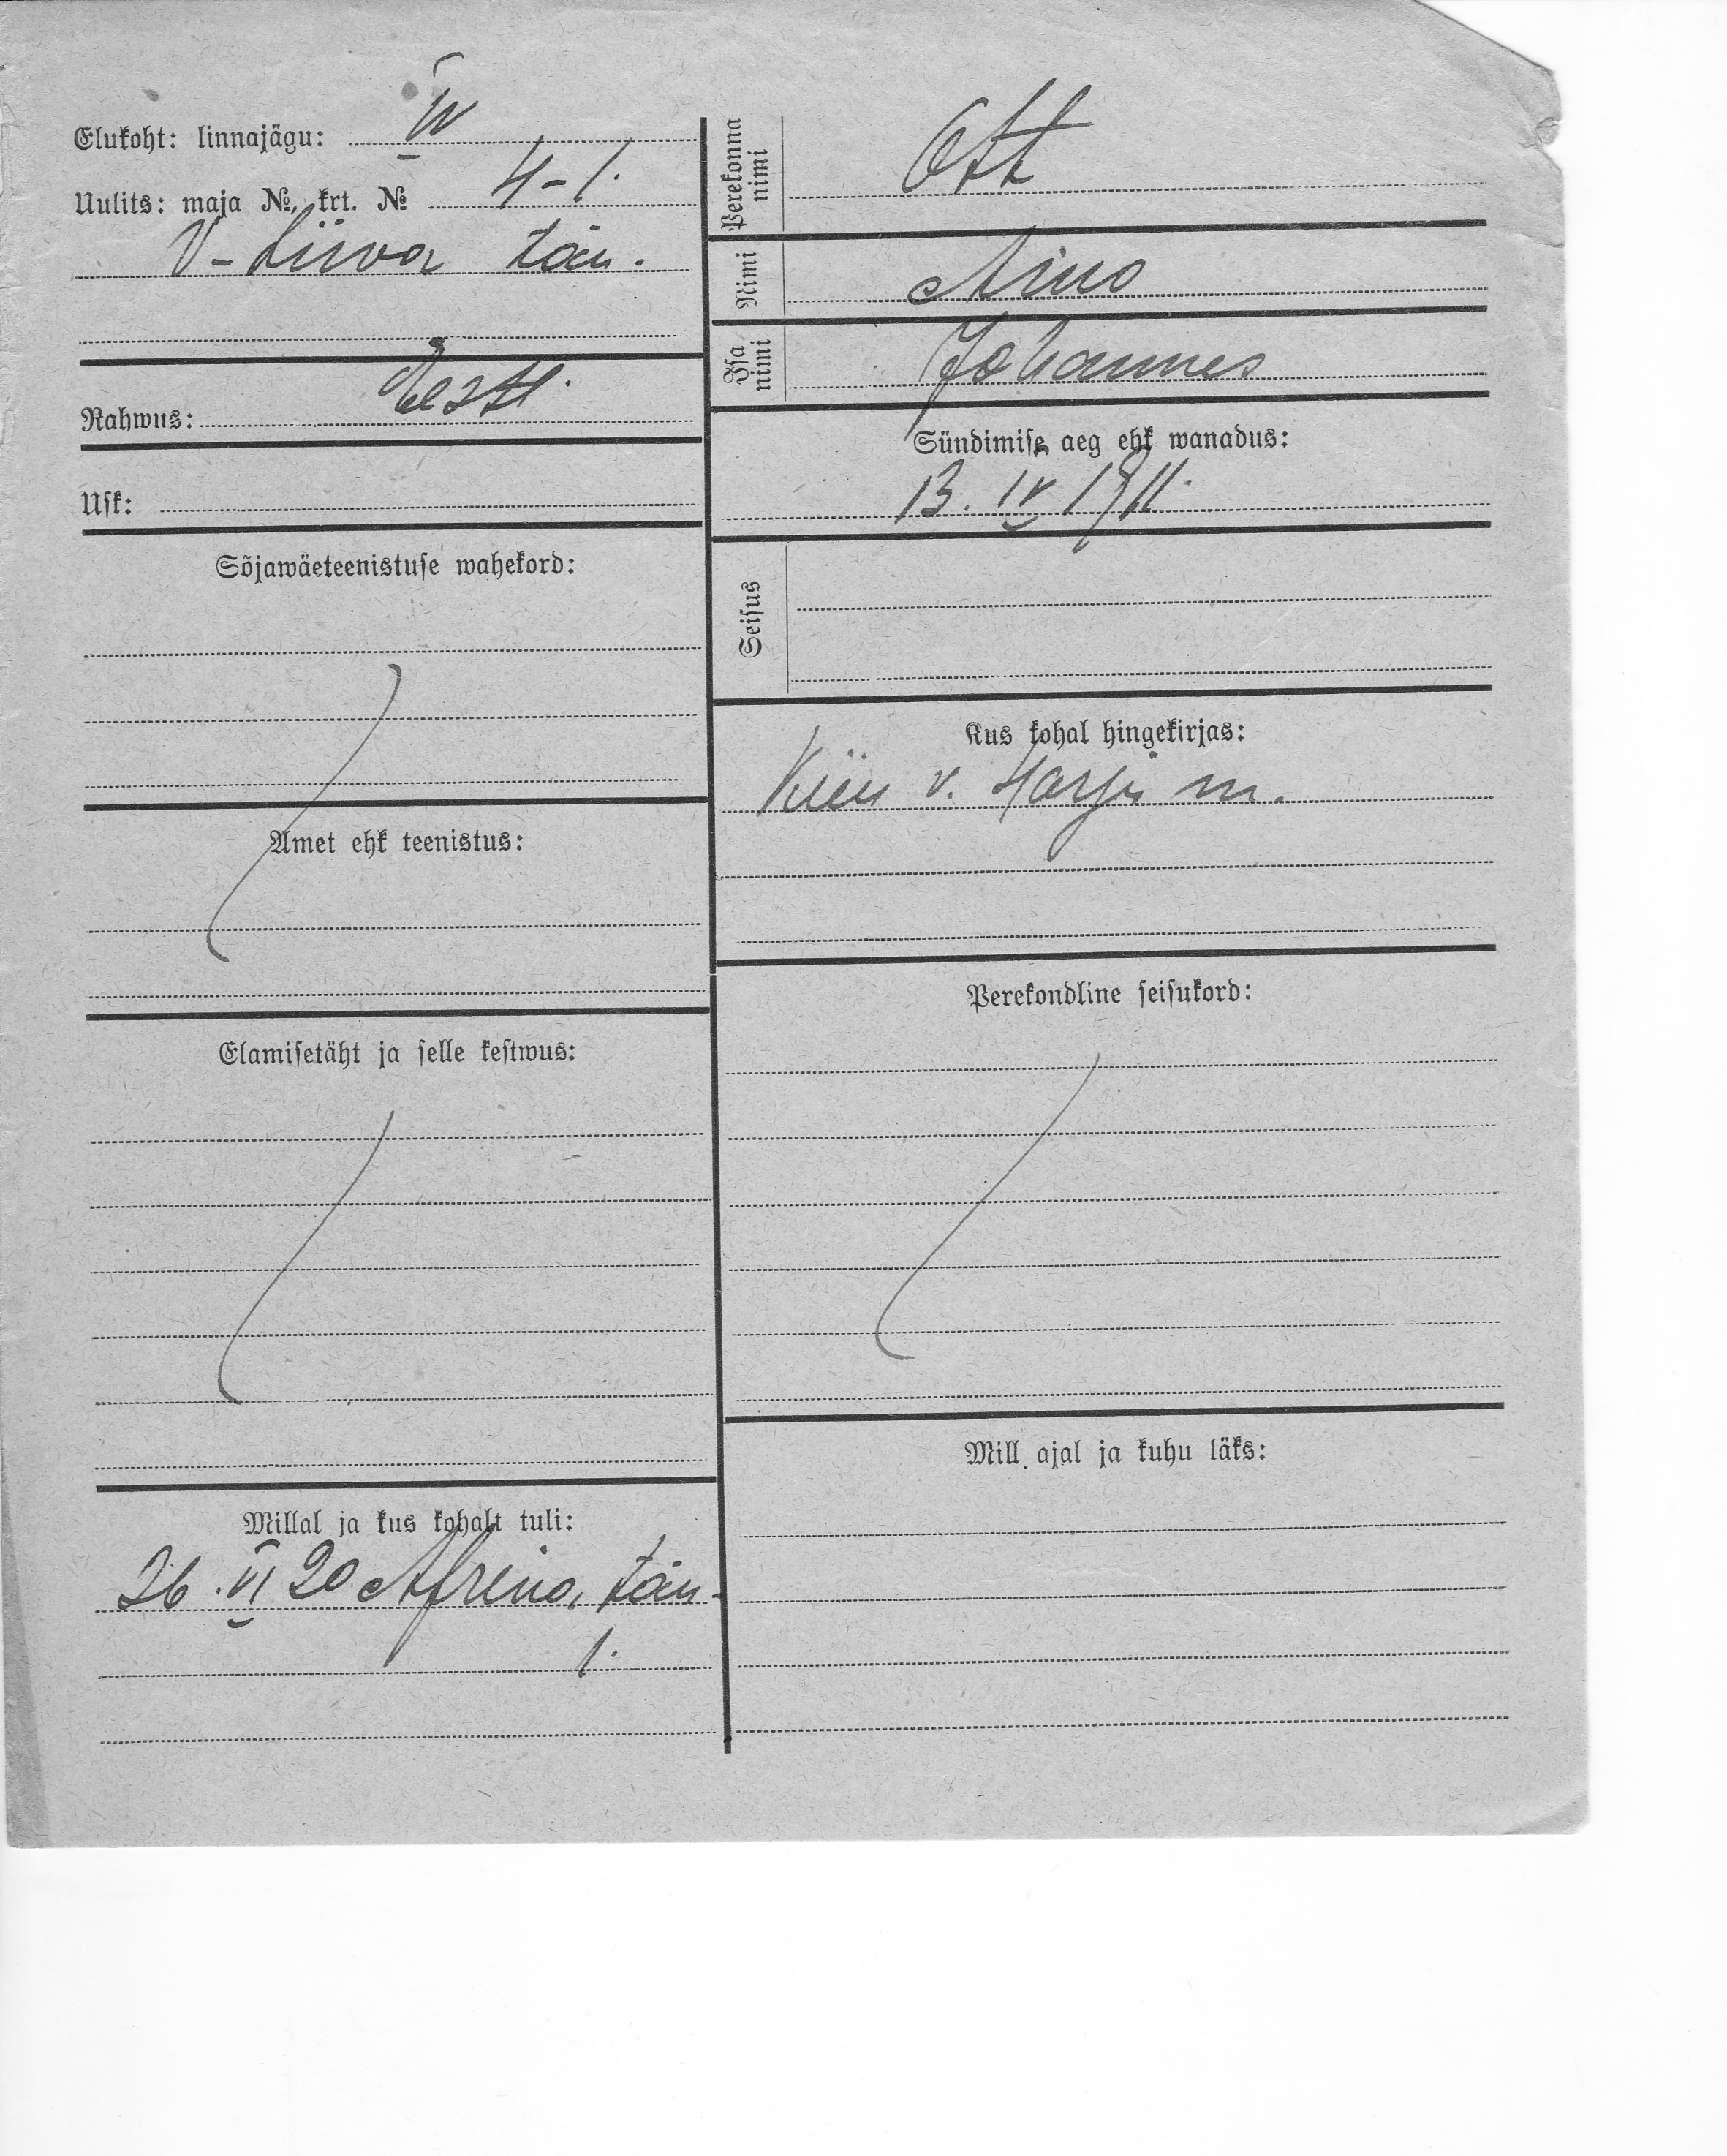 Elukoht: linnajägu: IV
Uulits: maja №, krt. № 4-1.
V-Liiva tän.
Rahwus: Eesti.
Usk:
Sõjawäeteenistuse wahekord:
Amet ehk teenistus:
Elamisetäht ja selle kestwus:
Millal ja kus kohalt tuli:
26. VI 20 tän.
1.
Perekonna nimi Ott
Nimi Aino
Isa nimi Johannes
Sündimise aeg ehk wanadus:
13. IV 1911.
Seisus
Kus kohal hingekirjas:
Kiiu v. Harju m.
Perekondline seisukord:
Mill ajal ja kuhu läks: